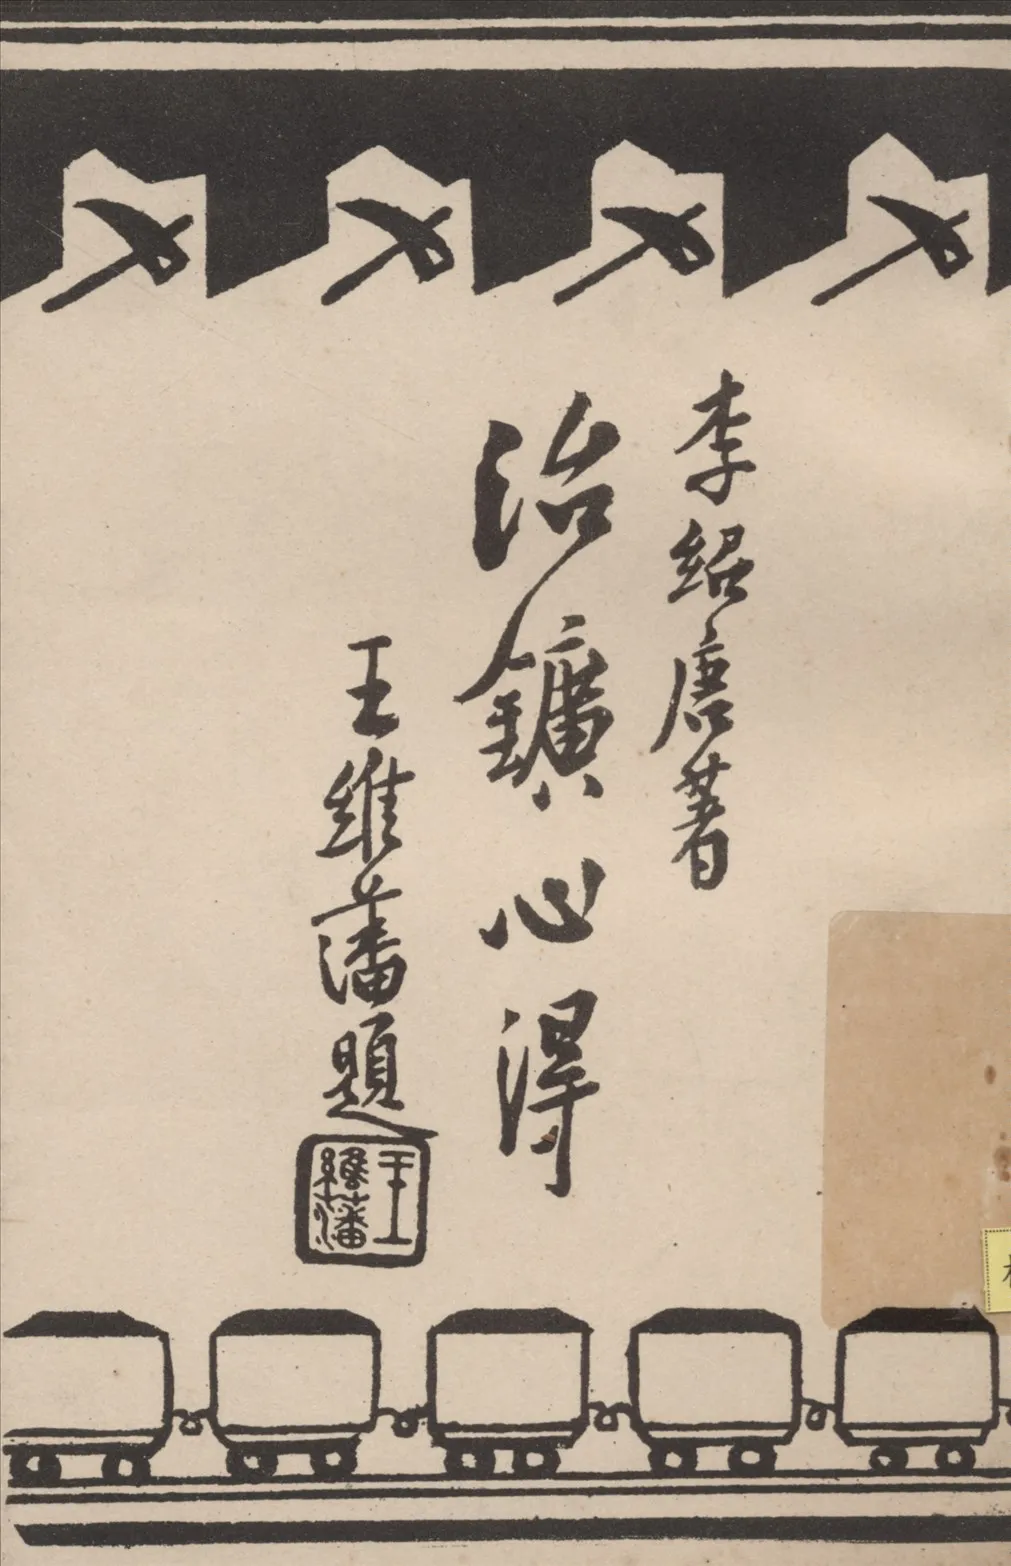 李紹唐著
治鑛心得
王維藩題
王維藩